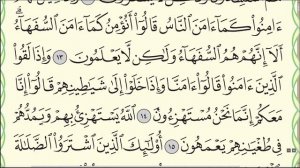 ءَامِنُوا۟ كَمَآ ءَامَنَ ٱلنَّاسُ قَالُوٓا۟ أَنُؤْمِنُ كَمَآ ءَامَنَ ٱلسُّفَهَآءُ ۗ
أَلَآ إِنَّهُمْ هُمُ ٱلسُّفَهَآءُ وَلَٰكِن لَّا يَعْلَمُونَ ١٣ وَإِذَا لَقُوا۟
ٱلَّذِينَ ءَامَنُوا۟ قَالُوٓا۟ ءَامَنَّا وَإِذَا خَلَوْا۟ إِلَىٰ شَيَٰطِينِهِمْ قَالُوٓا۟ إِنَّا
مَعَكُمْ إِنَّمَا نَحْنُ مُسْتَهْزِءُونَ ١٤ ٱللَّهُ يَسْتَهْزِئُ بِهِمْ وَيَمُدُّهُمْ
فِى طُغْيَٰنِهِمْ يَعْمَهُونَ ١٥ أُو۟لَٰٓئِكَ ٱلَّذِينَ ٱشْتَرَوُا۟ ٱلضَّلَٰلَةَ